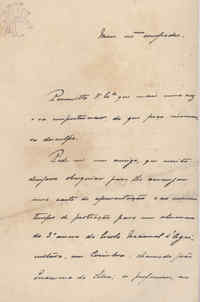 Meu caro confrade.
Permitta V. Ex.ª que mais uma vez
o vá importunar, do que peço me
me desculpe.
Pede-me um amigo, que muito
desejava obsequiar para lhe arranjar
uma carta de apresentação e ao mesmo
tempo de protecção para um alumno
do 3º anno da Escola Nacional d'Agri
cultura, em Coimbra, chamado João
da Silva, o professor, ao